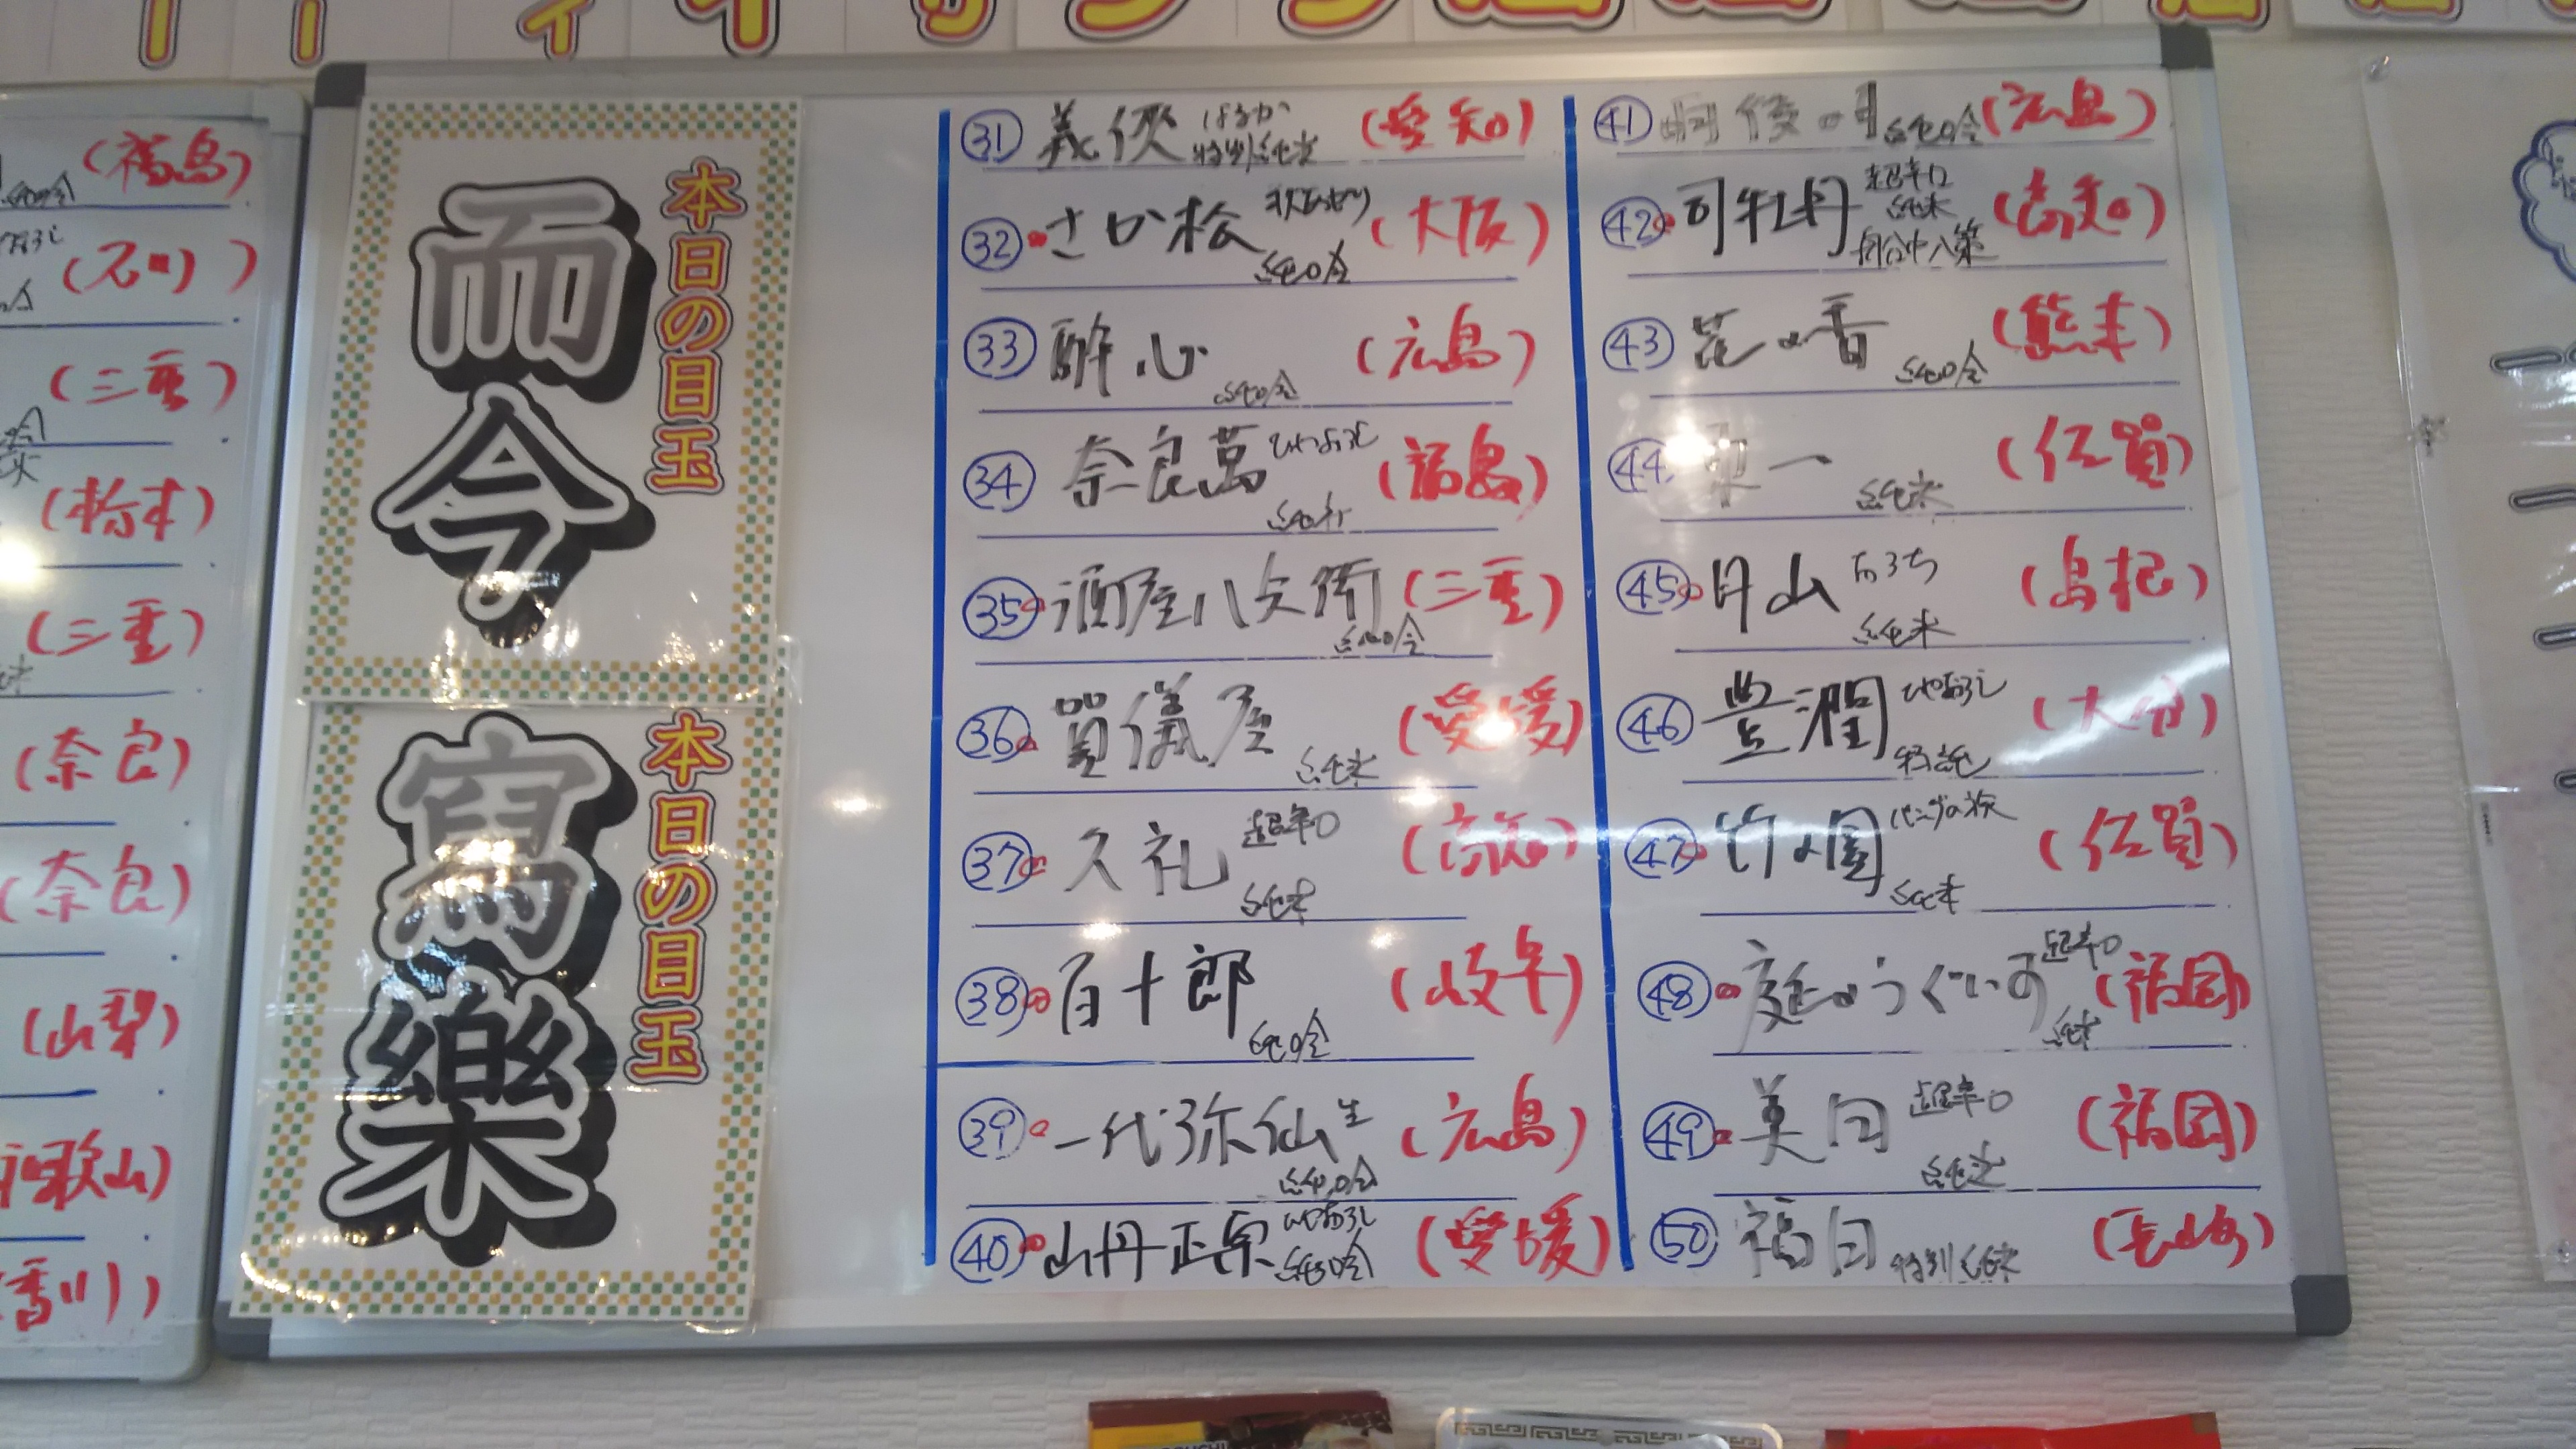 (福島)
(石川)
(三重)
(栃木)
(三重)
(奈良)
(奈良)
(山梨)
和歌山)
(香川)
本日の目玉
而今
本日の目玉
寫樂
㉛ 義侠 はるか 特別純米 (愛知)
㉜ さか松 純吟 (大阪)
㉝ 酔心 純吟 (広島)
㉞ 奈良萬 ひやおろし 純米 (福島)
㉟ 酒屋八兵衛 純吟 (三重)
㊱ 賀儀屋 純米 (愛媛)
㊲ 久礼 超辛口 純米 (高知)
㊳ 百十郎 純吟 (岐阜)
㊴ 一代弥山 生 純吟 (広島)
㊵ 山丹正宗 ひやおろし 純吟 (愛媛)
㊶ 純吟 (広島)
㊷ 司牡丹 超辛口 純米 船中八策 (高知)
㊸ 花の香 純吟 (熊本)
㊹ 一 純米 (佐賀)
㊺ 月山 おろち 純米 (島根)
㊻ 豊潤 ひやおろし 特純 (大分)
㊼ 竹の園 純米 (佐賀)
㊽ 庭のうぐいす 超辛口 純米 (福岡)
㊾ 美田 超辛口 純米 (福岡)
㊿ 福田 特別純米 (長崎)